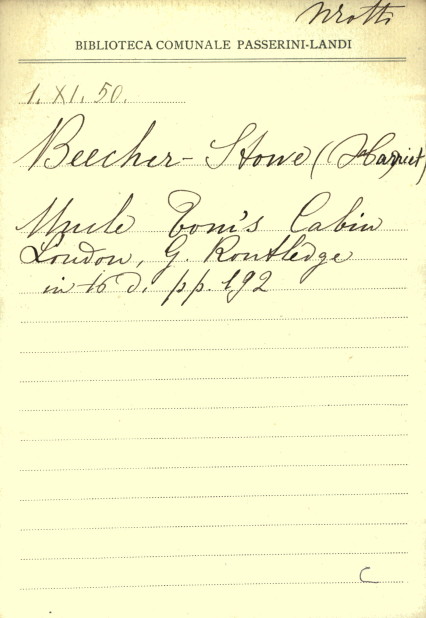 BIBLIOTECA COMUNALE PASSERINI-LANDI
1. XI. 50.
Beecher-Stowe (Harriet)
Uncle Tom's Cabin
London, G. Routledge
in 16 d. pp. 192
C